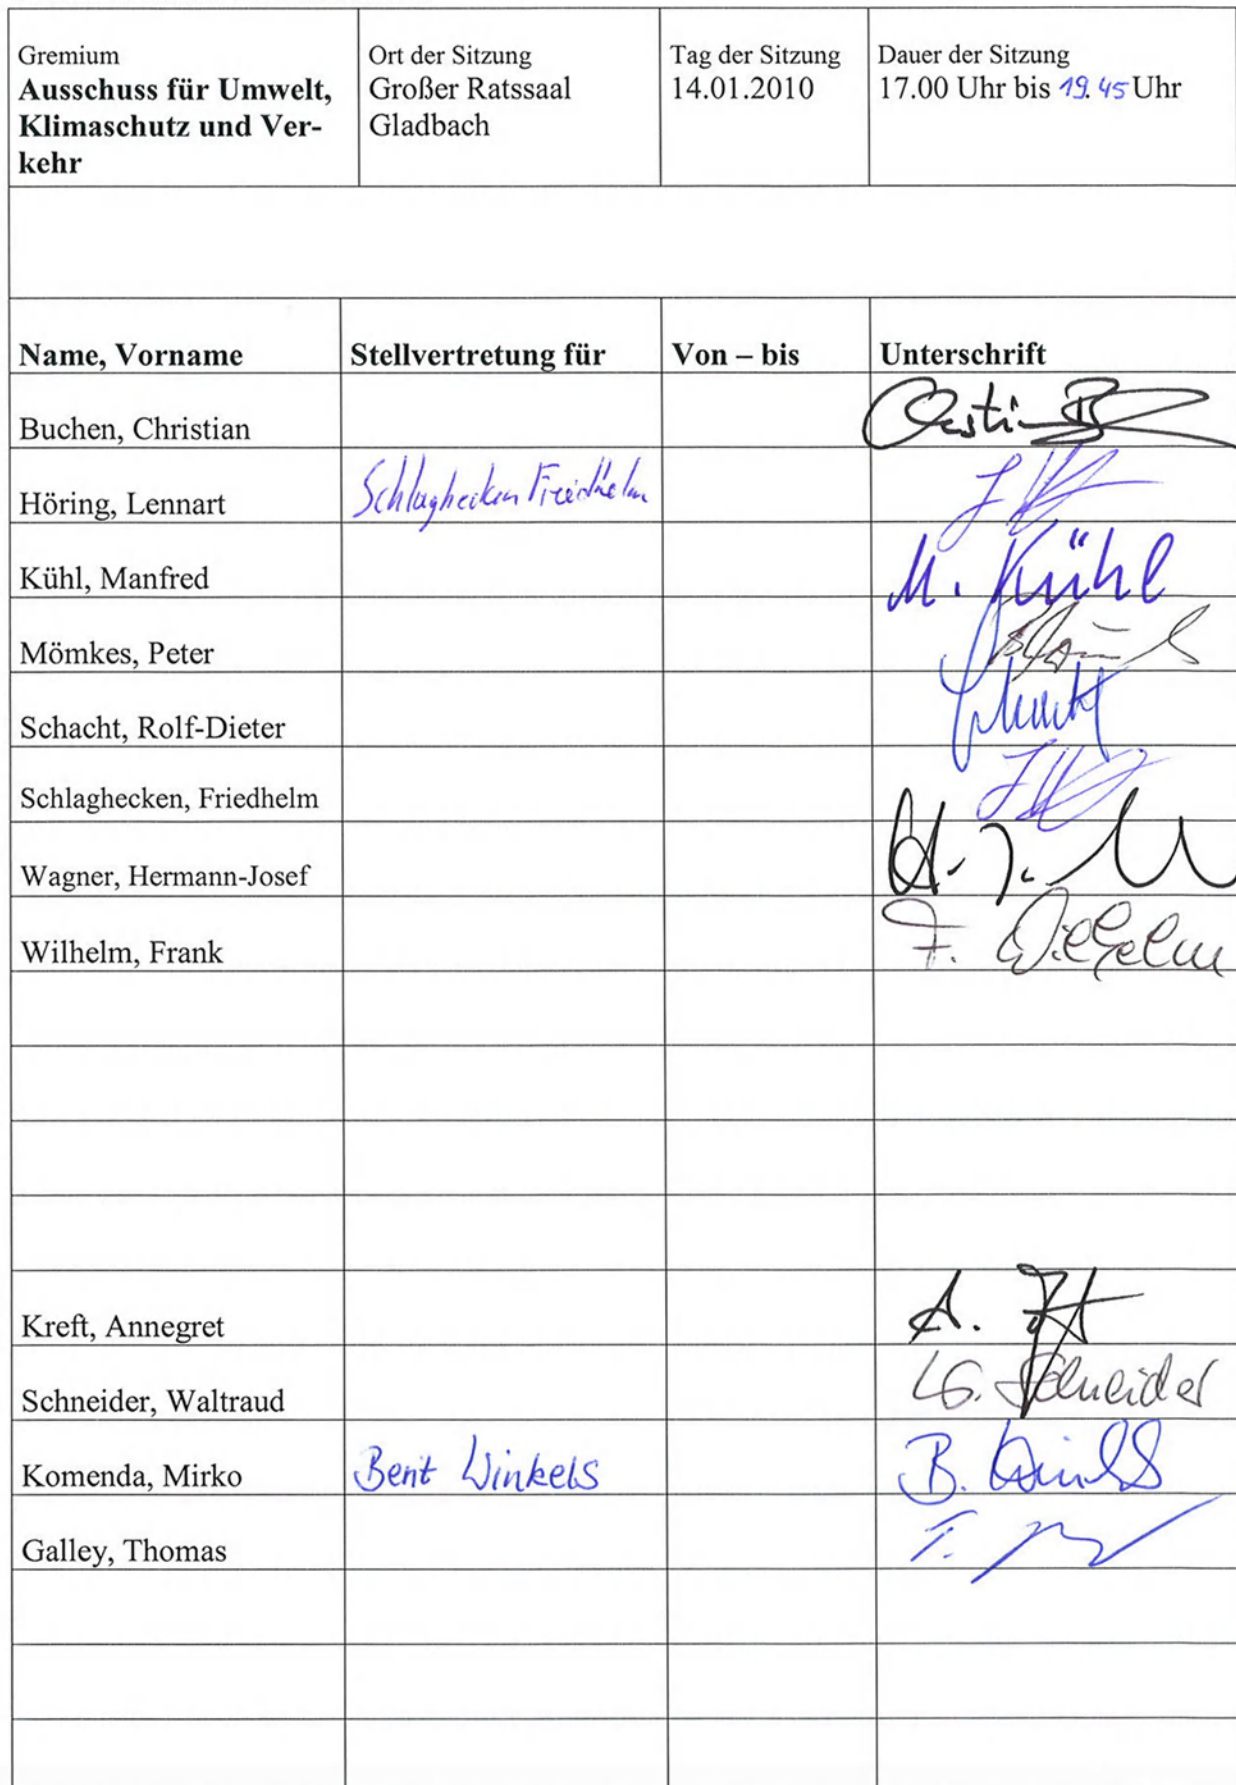 Gremium
Ausschuss für Umwelt,
Klimaschutz und Ver-
kehr
Ort der Sitzung
Großer Ratssaal
Gladbach
Tag der Sitzung
14.01.2010
Dauer der Sitzung
17.00 Uhr bis 19.45 Uhr
Name, Vorname Stellvertretung für Von – bis Unterschrift
Buchen, Christian
Höring, Lennart Schlaghecken Friedhelm
Kühl, Manfred M. Kühl
Mömkes, Peter
Schacht, Rolf-Dieter
Schlaghecken, Friedhelm
Wagner, Hermann-Josef
Wilhelm, Frank F. Wilhelm
Kreft, Annegret
Schneider, Waltraud W. Schneider
Komenda, Mirko Berit Winkels B. Winkels
Galley, Thomas